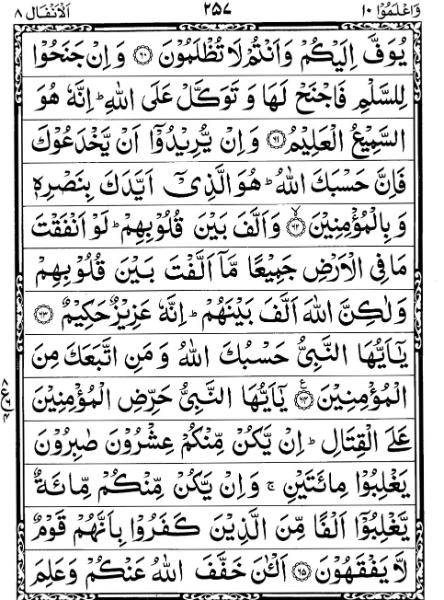 وَاعْلَمُوْٓا ١٠ ٢٥٧ اَلْاَنْفَال ٨
يُوَفَّ اِلَيْكُمْ وَاَنْتُمْ لَا تُظْلَمُوْنَ ﴿٦٠﴾ وَاِنْ جَنَحُوْا
لِلسَّلْمِ فَاجْنَحْ لَهَا وَتَوَكَّلْ عَلَى اللهِ ؕ اِنَّهٗ هُوَ
السَّمِيْعُ الْعَلِيْمُ ﴿٦١﴾ وَاِنْ يُّرِيْدُوْٓا اَنْ يَّخْدَعُوْكَ
فَاِنَّ حَسْبَكَ اللهُ ؕ هُوَ الَّذِيْٓ اَيَّدَكَ بِنَصْرِهٖ
وَبِالْمُؤْمِنِيْنَ ﴿٦٢﴾ۙ وَاَلَّفَ بَيْنَ قُلُوْبِهِمْ ؕ لَوْ اَنْفَقْتَ
مَا فِى الْاَرْضِ جَمِيْعًا مَّآ اَلَّفْتَ بَيْنَ قُلُوْبِهِمْ
وَلٰكِنَّ اللهَ اَلَّفَ بَيْنَهُمْ ؕ اِنَّهٗ عَزِيْزٌ حَكِيْمٌ ﴿٦٣﴾
يٰٓاَيُّهَا النَّبِىُّ حَسْبُكَ اللهُ وَمَنِ اتَّبَعَكَ مِنَ
الْمُؤْمِنِيْنَ ﴿٦٤﴾ع يٰٓاَيُّهَا النَّبِىُّ حَرِّضِ الْمُؤْمِنِيْنَ
عَلَى الْقِتَالِ ؕ اِنْ يَّكُنْ مِّنْكُمْ عِشْرُوْنَ صٰبِرُوْنَ
يَغْلِبُوْا مِائَتَيْنِ ۚ وَاِنْ يَّكُنْ مِّنْكُمْ مِّائَةٌ
يَّغْلِبُوْٓا اَلْفًا مِّنَ الَّذِيْنَ كَفَرُوْا بِاَنَّهُمْ قَوْمٌ
لَّا يَفْقَهُوْنَ ﴿٦٥﴾ اَلْـٰٔنَ خَفَّفَ اللهُ عَنْكُمْ وَعَلِمَ